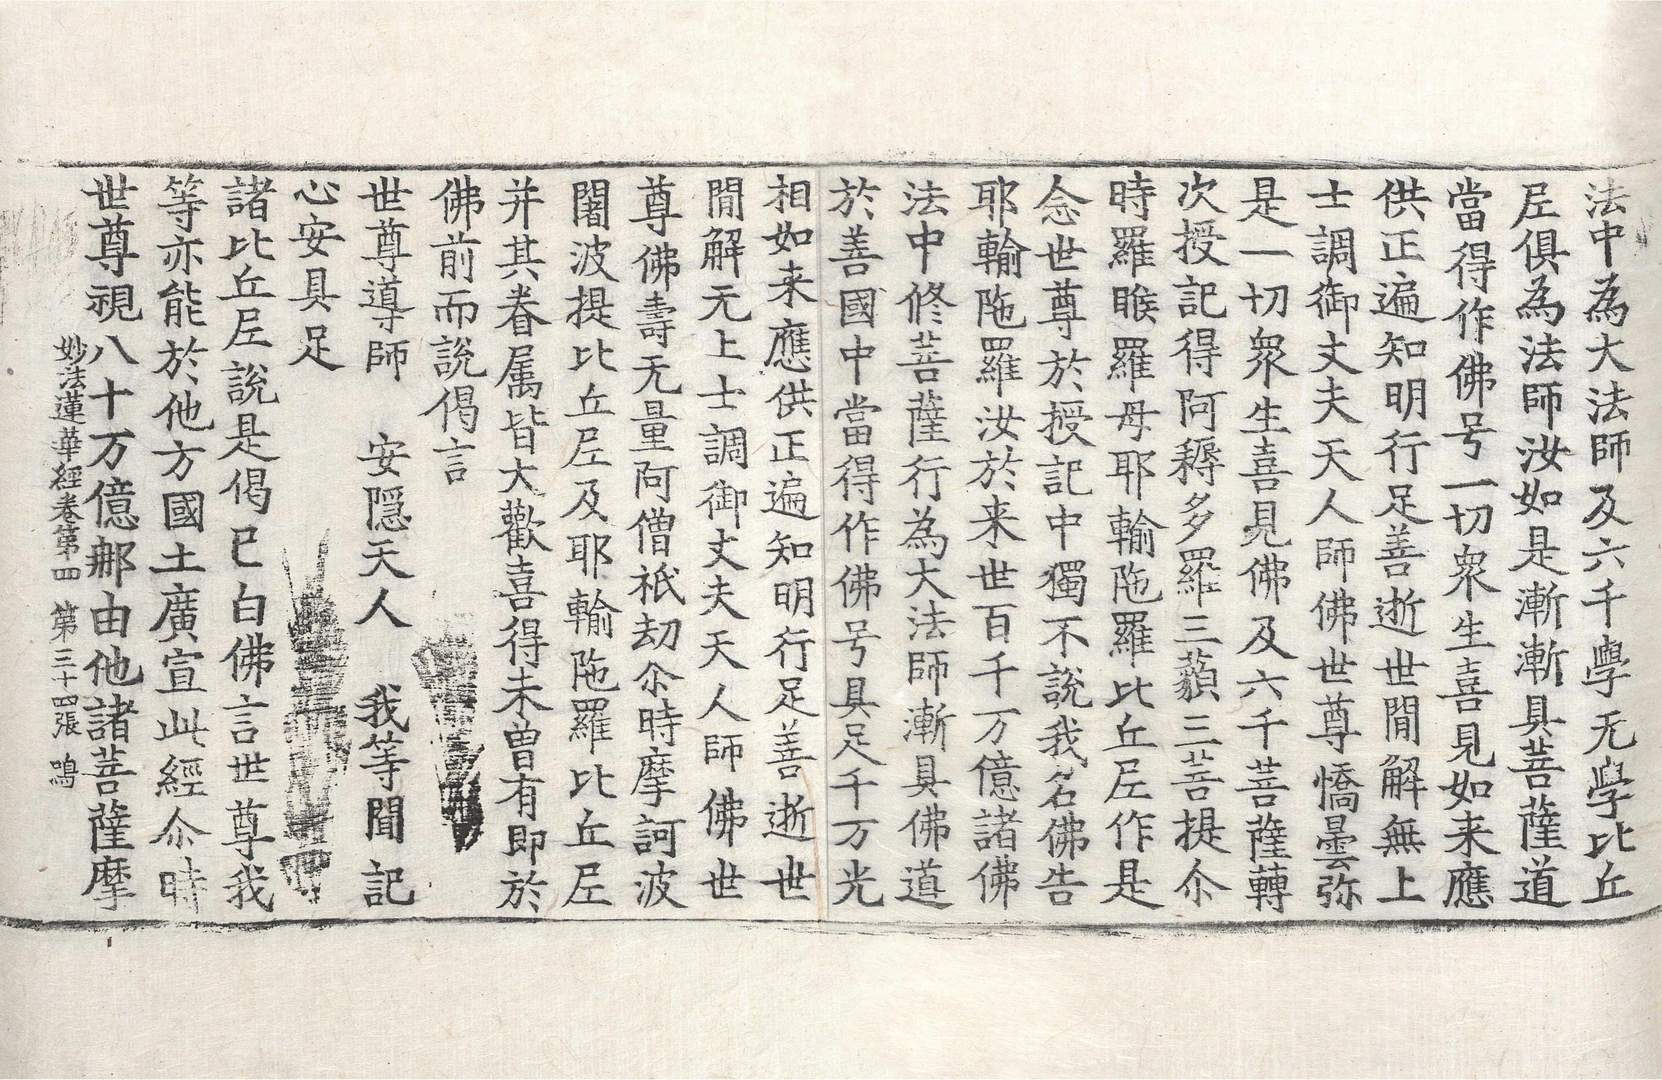 法中為大法師及六千學无學比丘
尼俱為法師汝如是漸漸具菩薩道
當得作佛号一切衆生喜見如来應
供正遍知明行足善逝世間解無上
士調御丈夫天人師佛世尊憍曇弥
是一切衆生喜見佛及六千菩薩轉
次授記得阿耨多羅三藐三菩提尒
時羅睺羅母耶輸陁羅比丘尼作是
念世尊於授記中獨不說我名佛告
耶輸陁羅汝於来世百千万億諸佛
法中修菩薩行為大法師漸具佛道
於善國中當得作佛号具足千万光
相如来應供正遍知明行足善逝世
閒解无上士調御丈夫天人師佛世
尊佛壽无量阿僧祇劫尒時摩訶波
闍波提比丘尼及耶輸陁羅比丘尼
并其眷属皆大歡喜得未曾有即於
佛前而說偈言
世尊導師　安隱天人　我等聞記
心安具足
諸比丘尼說是偈已白佛言世尊我
等亦能於他方國土廣宣此經尒時
世尊視八十万億那由他諸菩薩摩
妙法蓮華經卷第四　第三十四張　鳴